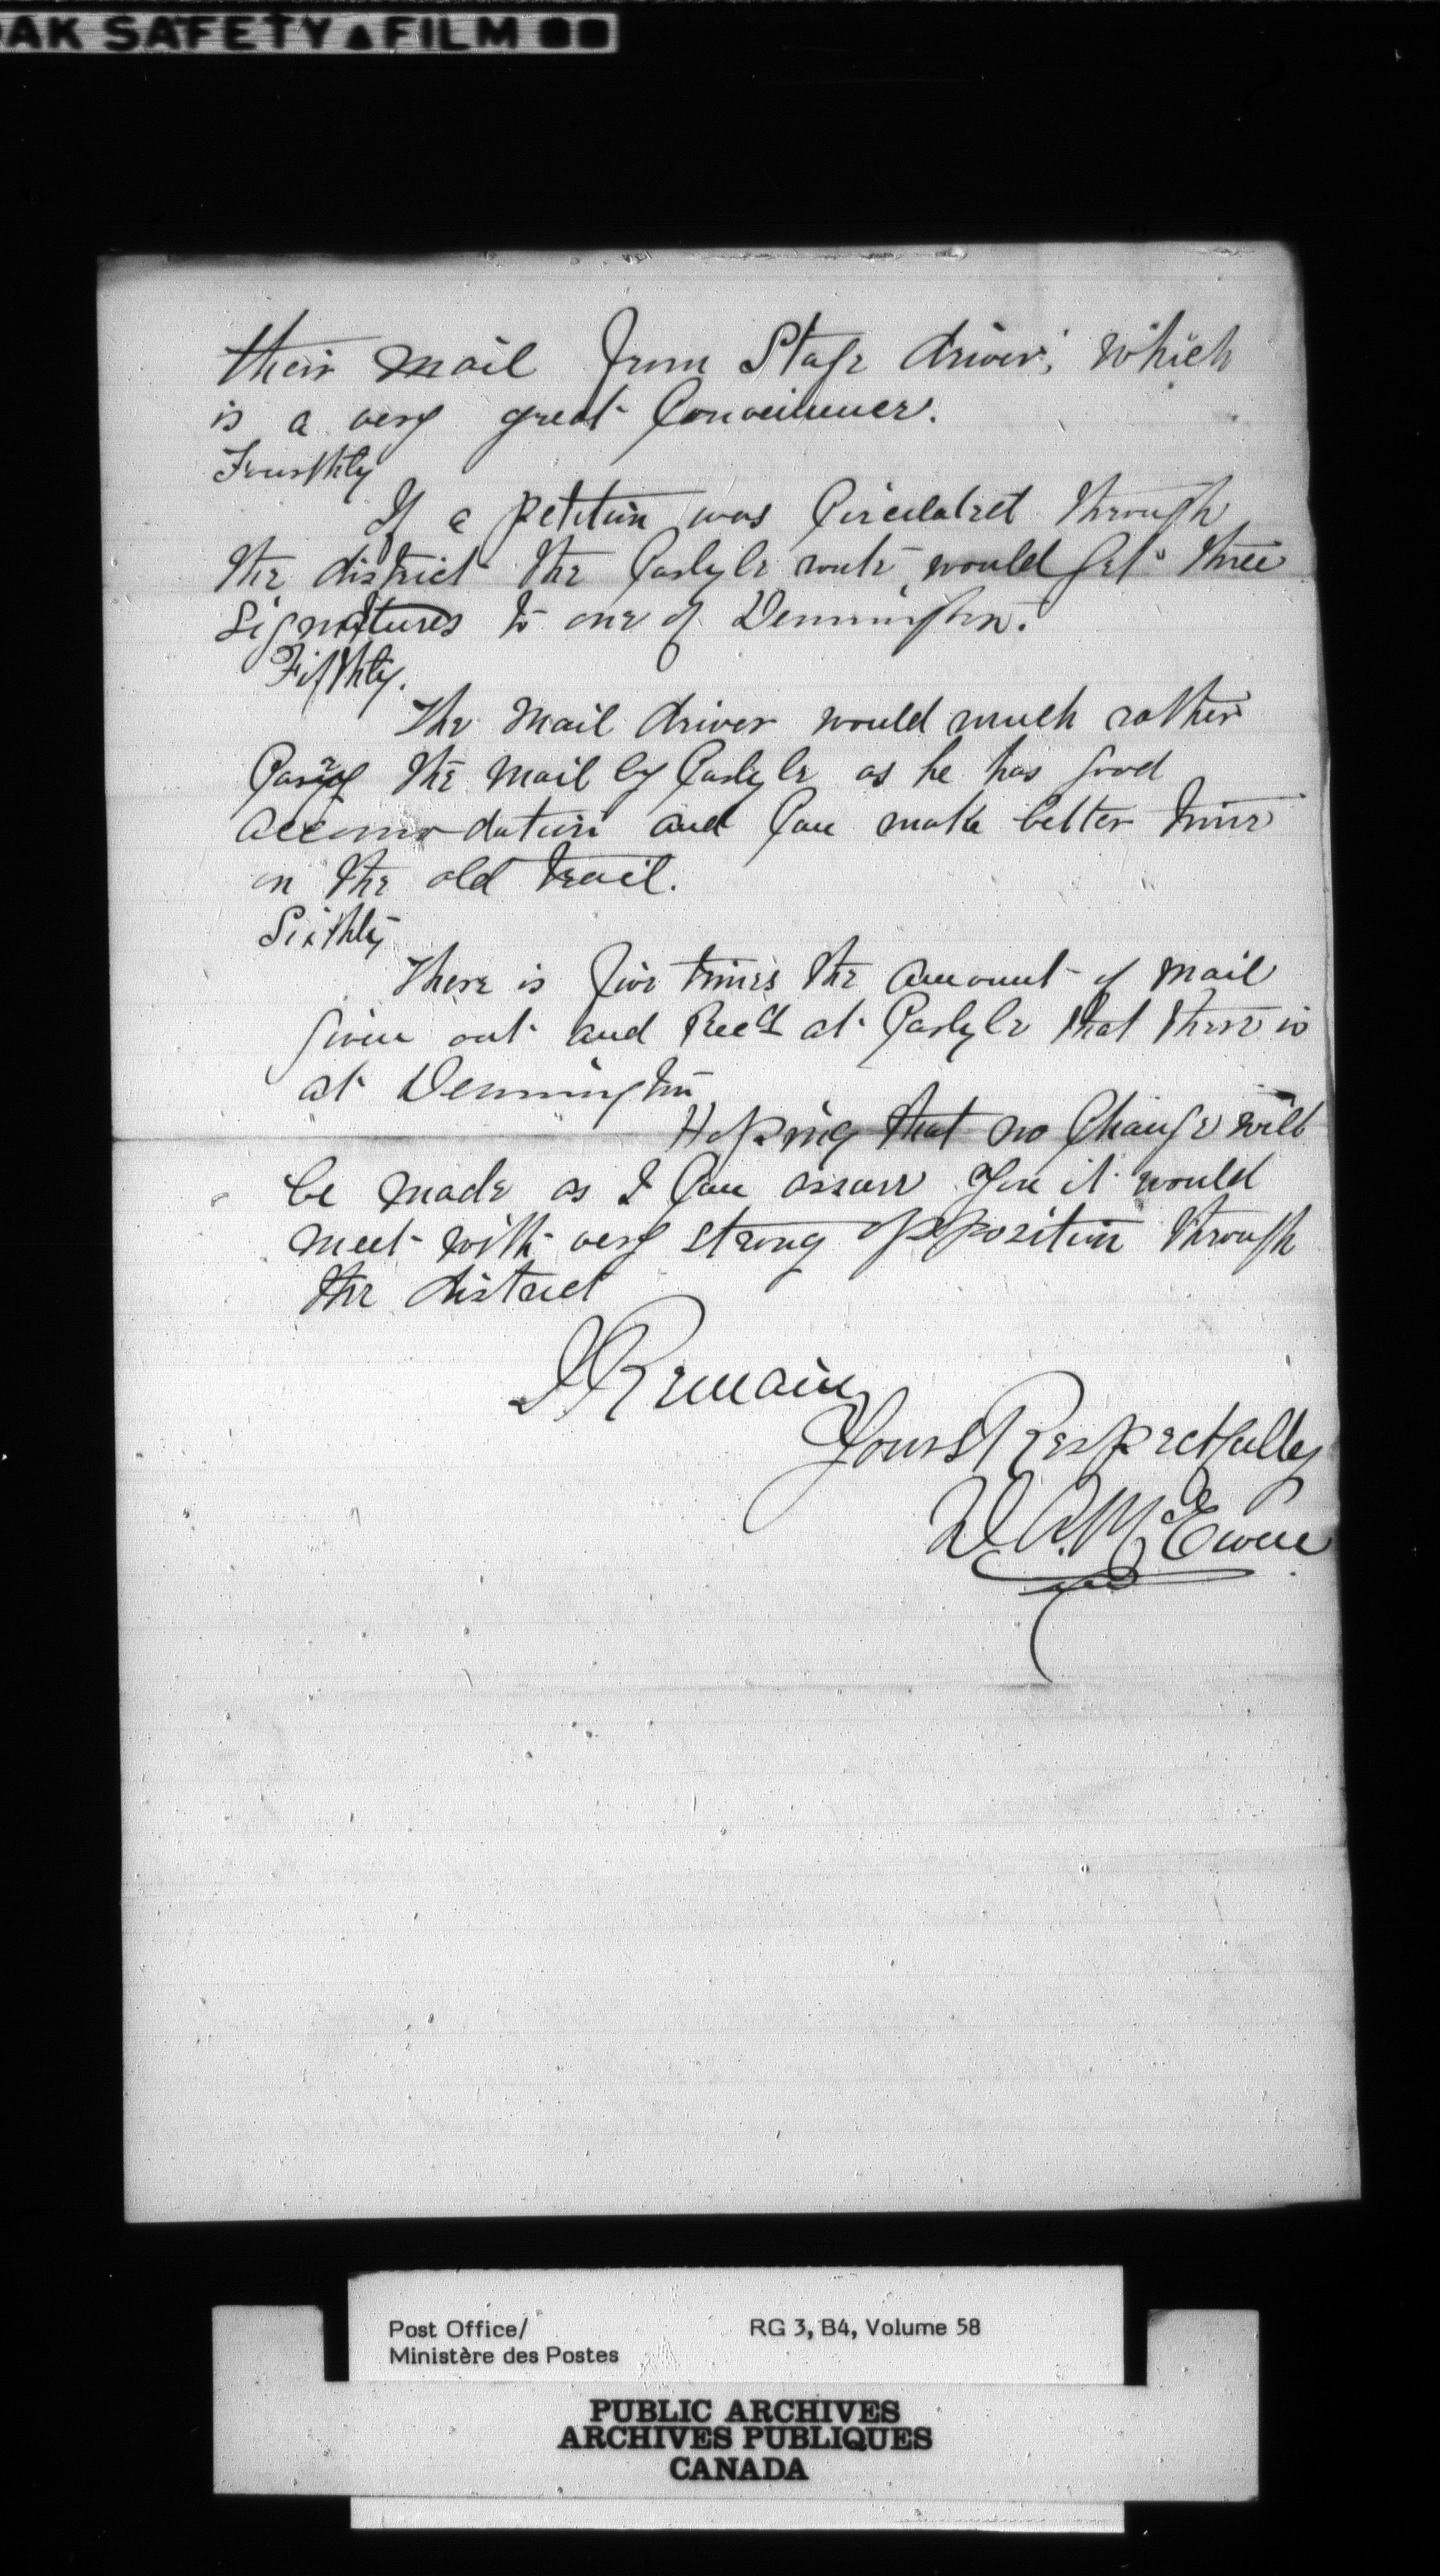 DAK SAFETY▲FILM ■■
their mail from Stage driver, which
is a very great Convenience.
Fourthly
If a petition was Circulated through
the district the Carlyle route would get three
signatures to one of Dennington.
Fifthly.
The Mail driver would much rather
Carry the Mail by Carlyle as he has good
accomodation and Can make better time
on the old trail.
Sixthly
There is five times the amount of Mail
given out and Recd at Carlyle that there is
at Dennington
Hopeing that no Change will
be made as I Can assure you it would
meet with very strong opposition through
the district
I Remain
Yours Respectfully
McEwen
Post Office/ RG 3, B4, Volume 58
Ministère des Postes
PUBLIC ARCHIVES
ARCHIVES PUBLIQUES
CANADA